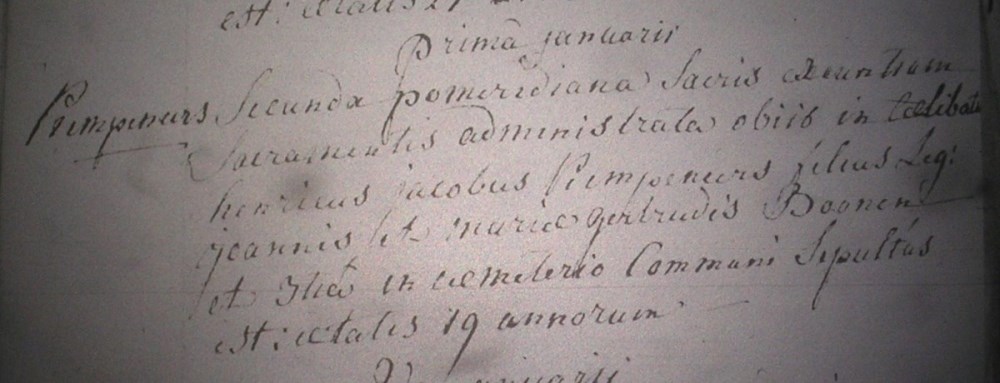 est: ætatis 27
Prima januarii
Pumpeneurs Secunda pomeridiana Sacris exeuntium
Sacramentis administrata obiit in cælibatu
henricus jacobus Pumpeneurs filius Leg:
joannis et mariæ gertrudis Boonen
et 3tia in cemeterio Communi Sepultus
est: ætatis 19 annorum
januarii